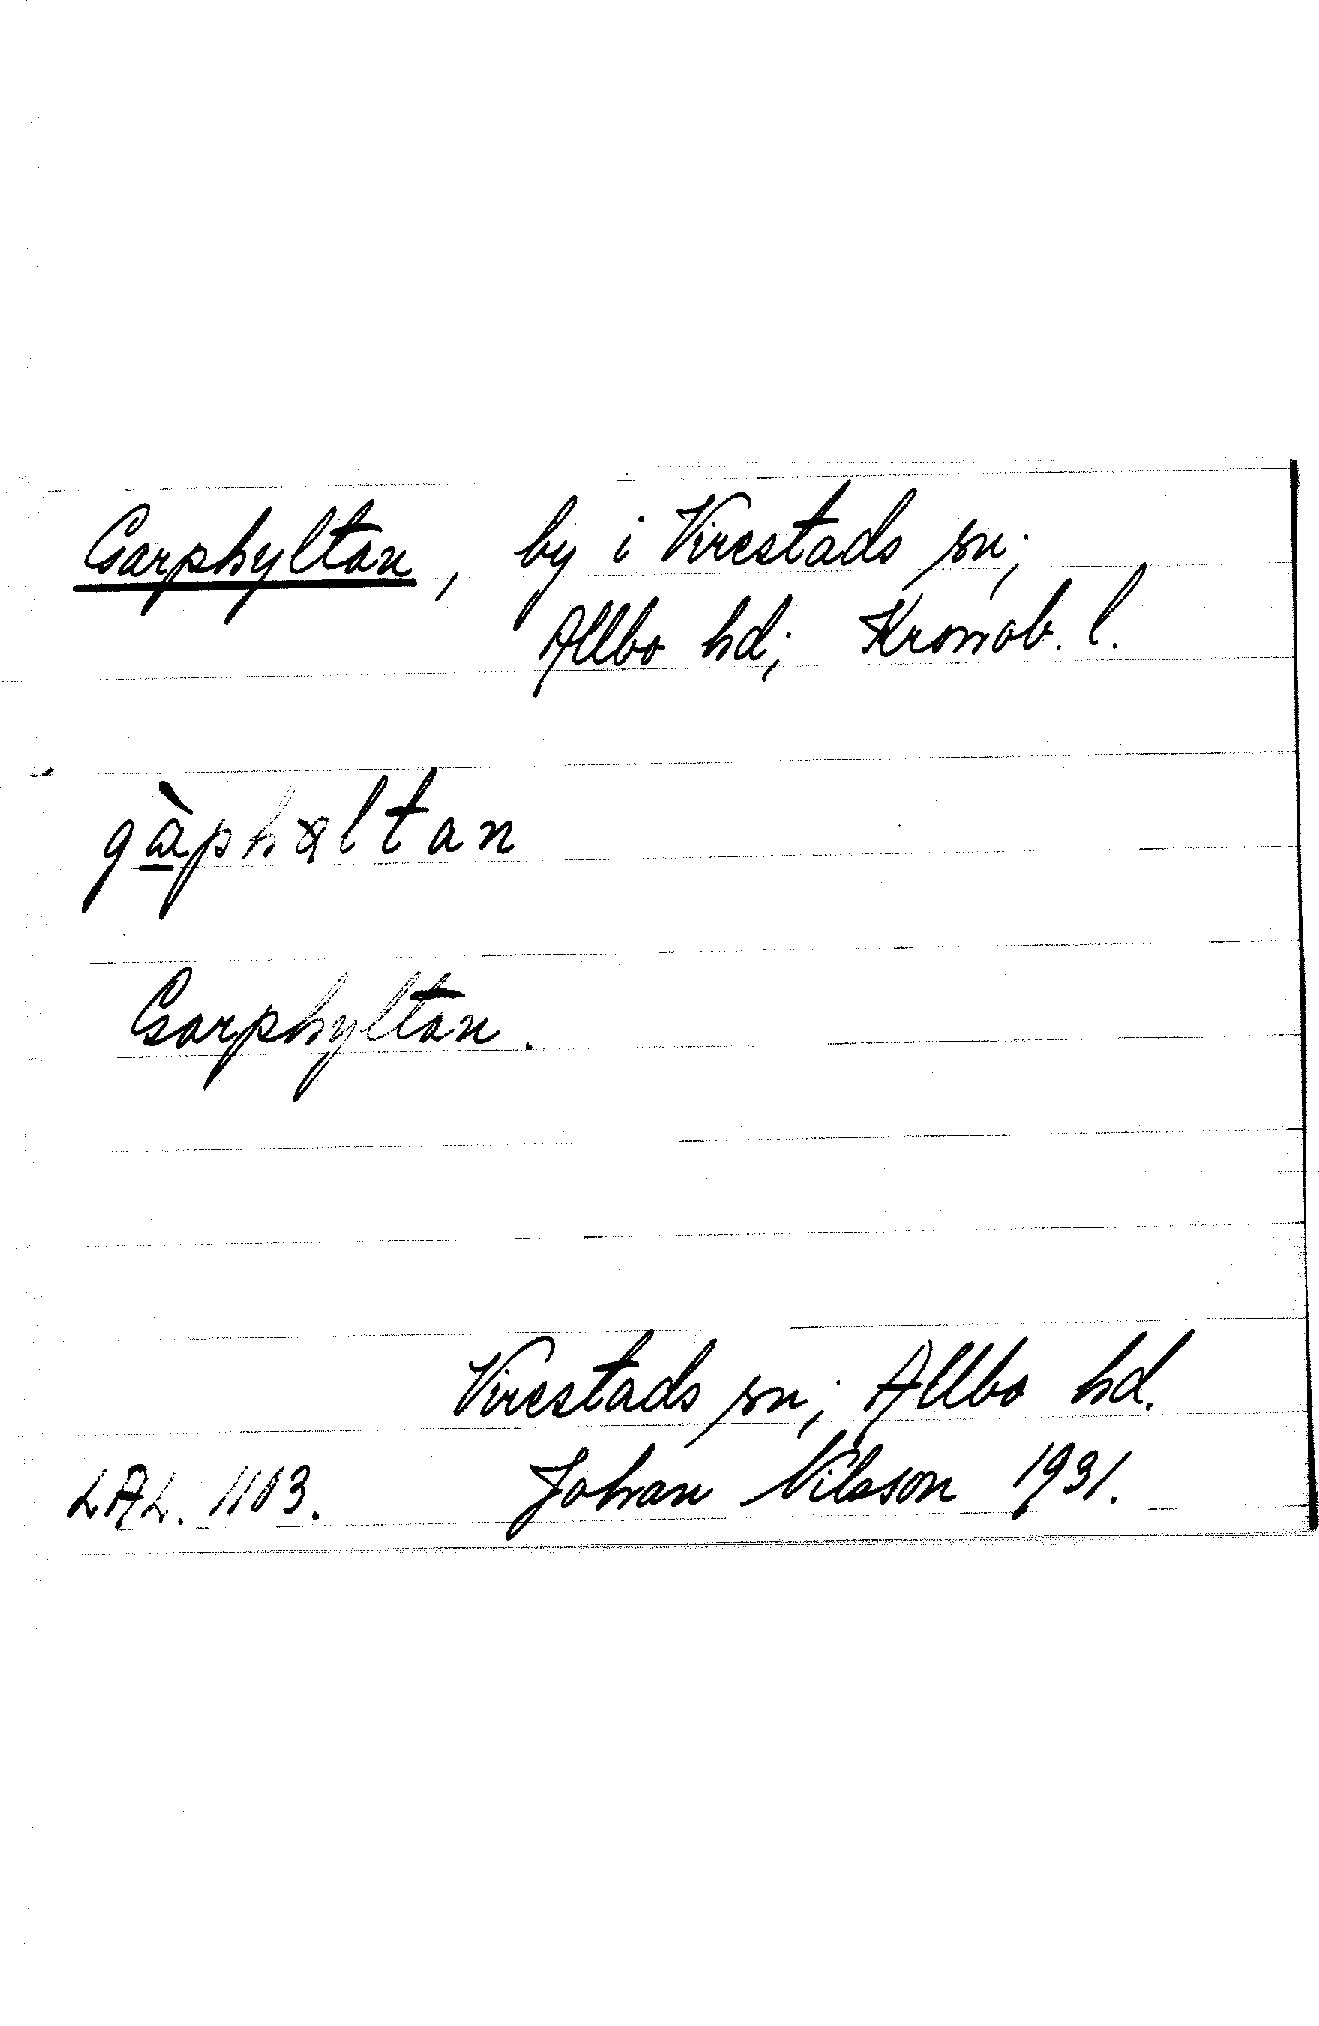 Garphyltan, by i Virestads sn;
Allbo hd; Kronob. l.
Garphyltan.
Virestads sn; Allbo hd.
LAL. 1103. Johan Nilsson 1931.